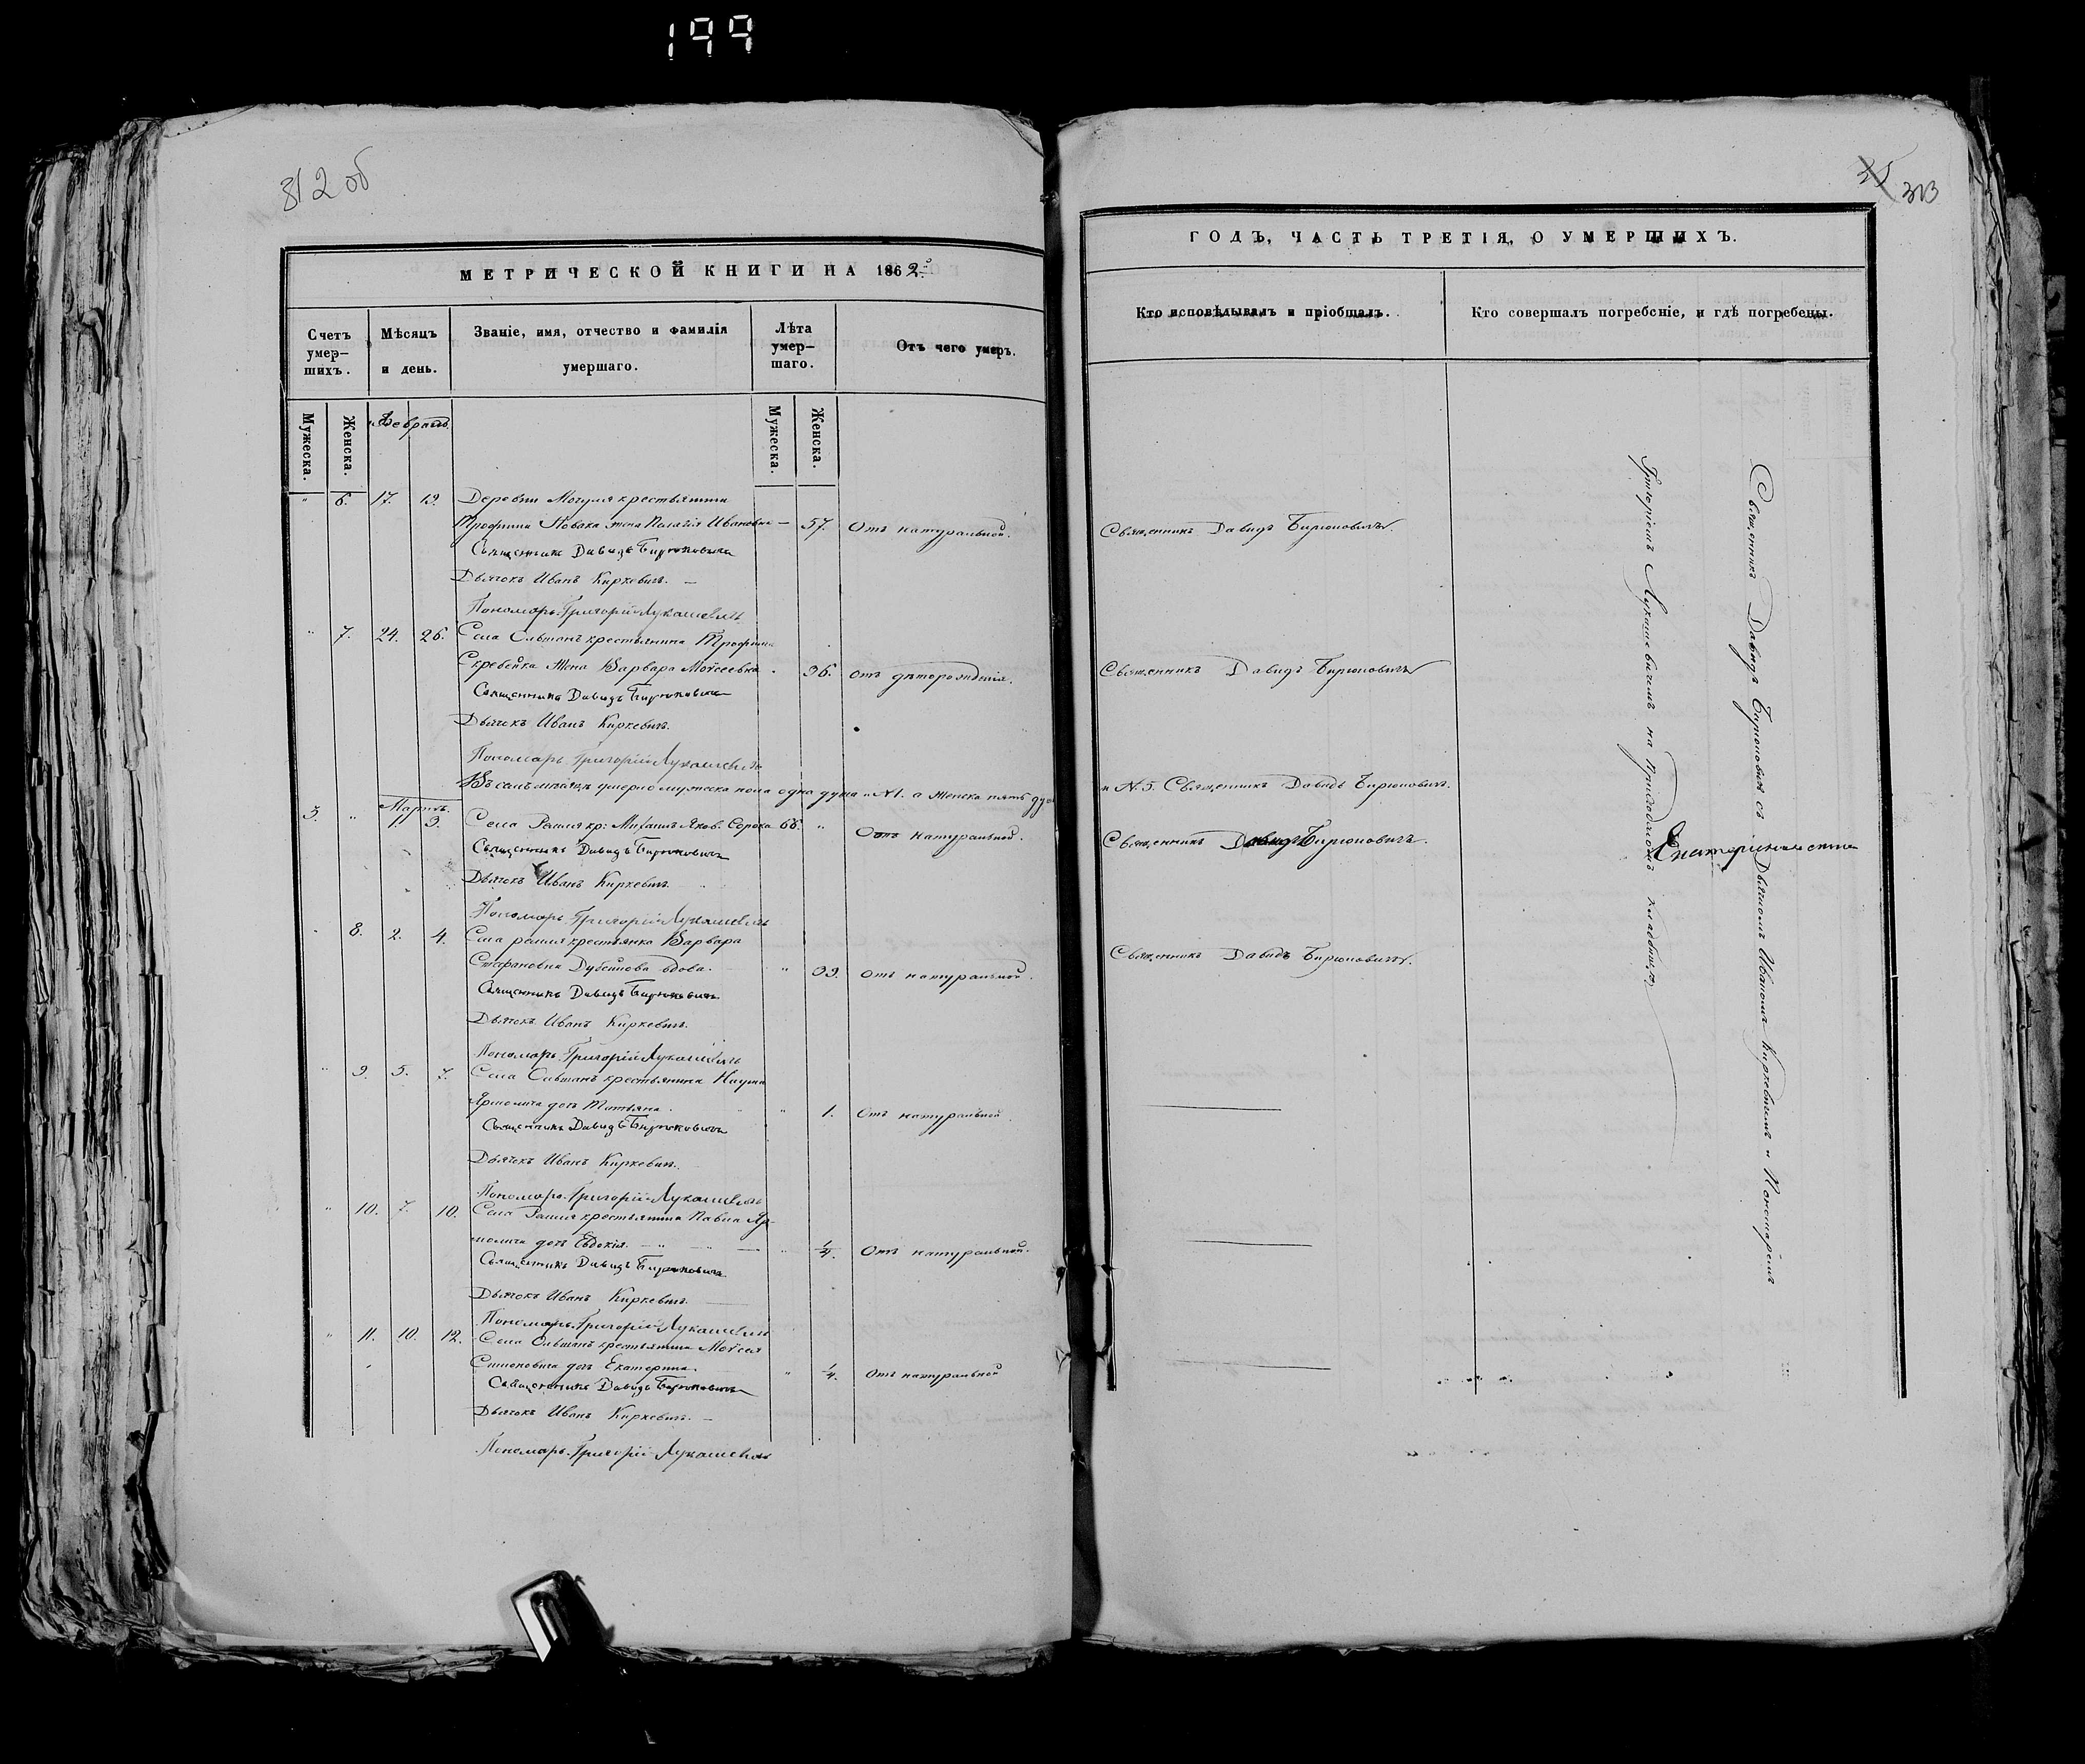 199
312 об
35 313
МЕТРИЧЕСКОЙ КНИГИ НА 1862й
Счетъ умер-шихъ.
Мѣсяцъ и день.
Званіе, имя, отчество и фамилія умершаго.
Лѣта умер-шаго.
Отъ чего умеръ.
Мужеска.
Женска.
Февраль
Мужеска.
Женска.
" 6. 17. 19. Деревни Могуля крестьянина
Трофима Новака жена Пелагія Ивановна — 57. Отъ натуральной.
Священникъ Давидъ Бирюковичъ
Дьячокъ Иванъ Киркевичъ. —
Пономарь Григорій Лукашевичъ
" 7. 24. 26. Села Ольтанъ крестьянина Трофима
жена Варвара Моѵсеевна 36. отъ дѣторожденія.
Священникъ Давидъ Бирюковичъ
Дьячекъ Иванъ Киркевичъ.
Пономарь Григорій Лукашевичъ
Въ семъ мѣсяцѣ умерло мужеска пола одна душа "N1. а Женска пять душъ
Мартъ.
3. " 1. 3. Села Ремля кр: Михаилъ Яков. Сорока 66. " Отъ натуральной.
Священникъ Давидъ Бирюковичъ
Дьячокъ Иванъ Киркевичъ
Пономарь Григорій Лукашевичъ
8. 2. 4. Села ремля крестьянка Варвара
Стефановна вдова. " 39. отъ натуральной.
Священникъ Давидъ Бирюковичъ
Дьячокъ Иванъ Киркевичъ.
Пономарь Григорій Лукашевичъ
" 9. 5. 7. Села Ольтанъ крестьянина Наума
Ярмолича дочь Татьяна. " 1. Отъ натуральной
Священникъ Давидъ Бирюковичъ
Дьячекъ Иванъ Киркевичъ.
Пономарь Григорій Лукашевичъ
" 10. 7. 10. Села Ремля крестьянина Павла Яр-
молича дочь Евдокія. " 1/4. Отъ натуральной.
Священникъ Давидъ Бирюковичъ
Дьячокъ Иванъ Киркевичъ.
Пономарь Григорій Лукашевичъ
" 11. 10. 12. Села Ольтанъ крестьянина Моѵсея
дочь Екатерина. " 1/4. Отъ натуральной
Священникъ Давидъ Бирюковичъ
Дьячокъ Иванъ Киркевичъ. —
Пономарь Григорій Лукашевичъ
ГОДЪ, ЧАСТЬ ТРЕТІЯ, О УМЕРШИХЪ.
Кто исповѣдывалъ и пріобщалъ.
Кто совершалъ погребеніе, и гдѣ погребены.
Священникъ Давидъ Бирюковичъ.
Священникъ Давидъ Бирюковичъ
и N.5. Священникъ Давидъ Бирюковичъ.
Священникъ Давидъ Бирюковичъ.
Священникъ Давидъ Бирюковичъ.
Священникъ Давидъ Бирюковичъ съ Дьячкомъ Иваномъ Киркевичемъ и Пономаремъ
Григоріемъ Лукашевичемъ на Приходскомъ кладбищѣ